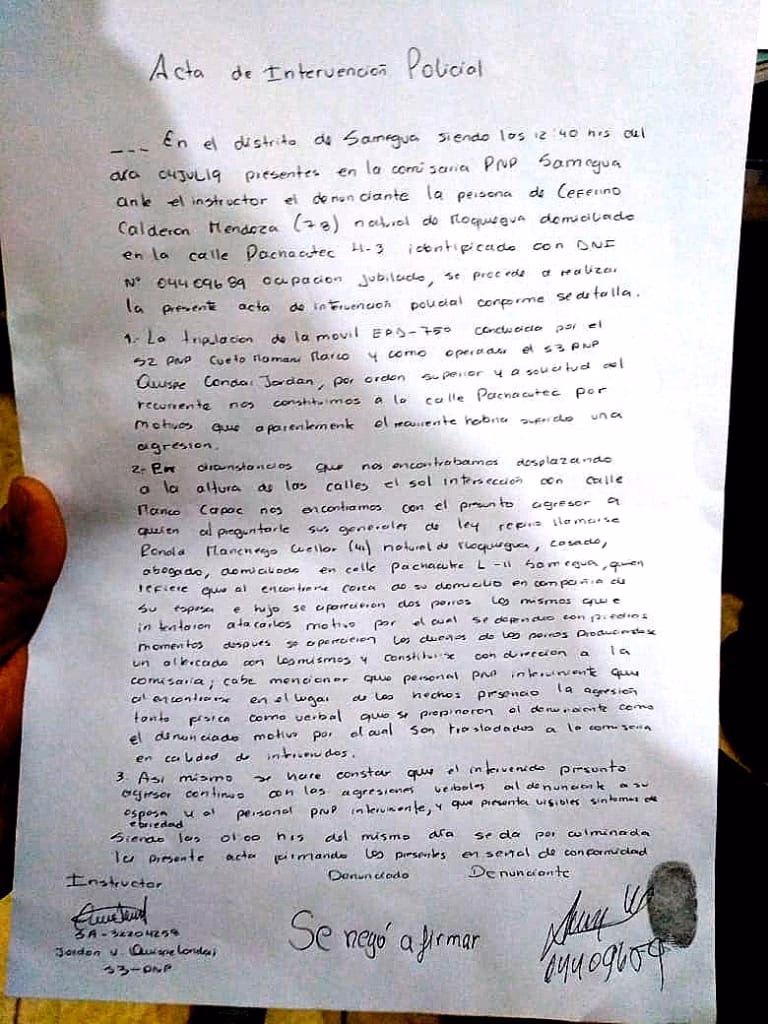 Acta de Intervención Policial
--- En el distrito de Samegua siendo las 12:40 hrs del
día 04JUL19 presentes en la comisaria PNP Samegua
ante el instructor el denunciante la persona de Ceferino
Calderon Mendoza (78) natural de Moquegua domiciliado
en la calle Pachacutec H-3 identificado con DNI
Nº 04409689 ocupacion jubilado, se procede a realizar
la presente acta de intervención policial conforme se detalla.
1.- La tripulacion de la movil EPD-750 conducida por el
S2 PNP Cueto Mamani Marco y como operador el S3 PNP
Quispe Condori Jordan, por orden superior y a solicitud del
recurrente nos constituimos a la calle Pachacutec por
motivos que aparentemente el recurrente habria sufrido una
agresion.
2.- En circunstancias que nos encontrabamos desplazando
a la altura de las calles el sol intersección con calle
Manco Capac nos encontramos con el presunto agresor a
quien al preguntarle sus generales de ley refirio llamarse
Ronald Manchego Cuellar (41) natural de Moquegua, casado,
abogado, domiciliado en calle Pachacutec L-11 Samegua, quien
refiere que al encontrarse cerca de su domicilio en compañia de
su esposa e hijo se aparecieron dos perros los mismos que
intentaron atacarlos motivo por el cual se defendio con piedras
momentos despues se aparecieron los dueños de los perros produciendose
un altercado con los mismos y constituirse con dirección a la
comisaria; cabe mencionar que personal PNP interviniente que
al encontrarse en el lugar de los hechos presencio la agresión
tanto fisica como verbal que se propinaron al denunciante como
el denunciado motivo por el cual son trasladados a la comisaria
en calidad de intervenidos.
3. Asi mismo se hace constar que el intervenido presunto
agresor continuo con las agresiones verbales al denunciante a su
esposa y al personal PNP interviniente, y que presenta visibles sintomas de
ebriedad
Siendo las 01:00 hrs del mismo día se da por culminada
la presente acta firmando los presentes en señal de conformidad
Instructor Denunciado Denunciante
SA-32204258
Jordan V. Quispe Condori
S3-PNP
Se negó a firmar